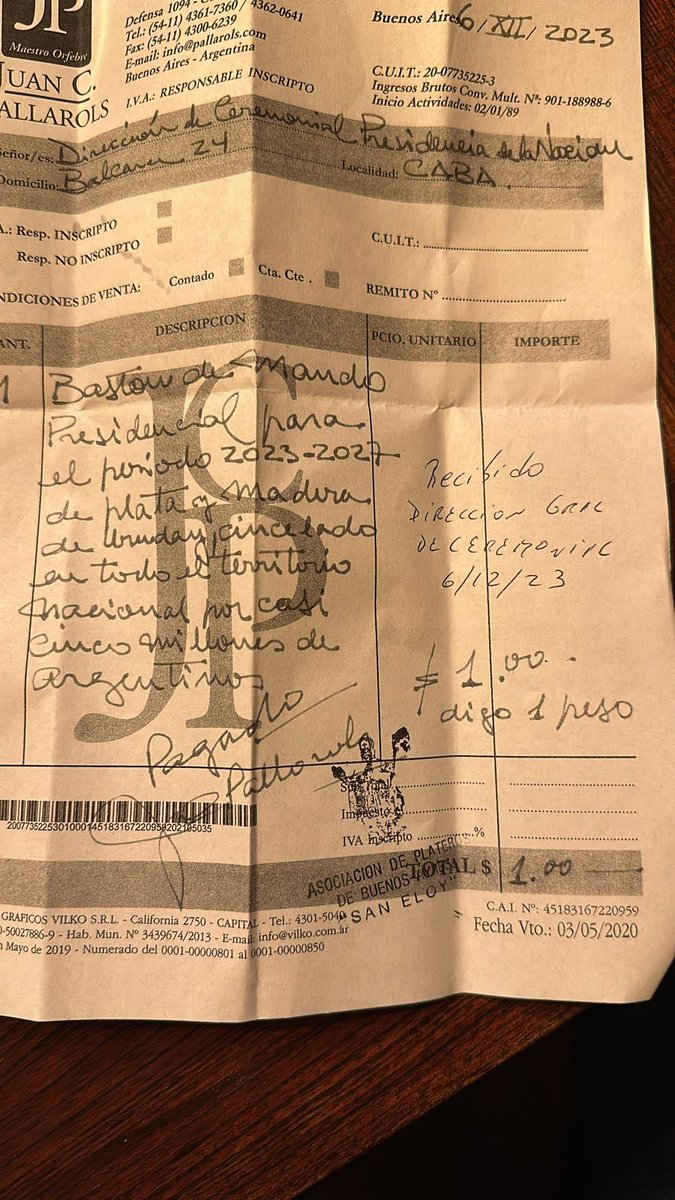 JP
Maestro Orfebre
JUAN C.
PALLAROLS
Defensa 1094 -
Tel.: (54-11) 4361-7360 / 4362-0641
Fax: (54-11) 4300-6239
E-mail: info@pallarols.com
Buenos Aires - Argentina
I.V.A.: RESPONSABLE INSCRIPTO
Buenos Aires 6/XII/2023
C.U.I.T.: 20-07735225-3
Ingresos Brutos Conv. Mult. Nº: 901-188988-6
Inicio Actividades: 02/01/89
Señor/es: Dirección de Ceremonial Presidencia de la Nación
Domicilio: Balcarce 24 Localidad: CABA.
A.: Resp. INSCRIPTO
Resp. NO INSCRIPTO
C.U.I.T.:
NDICIONES DE VENTA: Contado Cta. Cte. REMITO Nº
ANT. DESCRIPCION PCIO. UNITARIO IMPORTE
1 Bastón de Mando
Presidencial para
el período 2023-2027
de plata y madera
de Urunday, cincelado
en todo el territorio
nacional por casi
cinco millones de
argentinos
Recibido
DIRECCION GRAL
DE CEREMONIAL
6/12/23
$ 1.00.-
digo 1 peso
Pagado
Pallarols
JCP
Sub Total
Impuesto
IVA Inscripto %
TOTAL $ 1.00
2007735225301000145183167220959202195035
ASOCIACION DE PLATEROS
DE BUENOS AIRES
"SAN ELOY"
GRAFICOS VILKO S.R.L. - California 2750 - CAPITAL - Tel.: 4301-5040
0-50027886-9 - Hab. Mun. Nº 3439674/2013 - E-mail: info@vilko.com.ar
n Mayo de 2019 - Numerado del 0001-00000801 al 0001-00000850
C.A.I. Nº: 45183167220959
Fecha Vto.: 03/05/2020